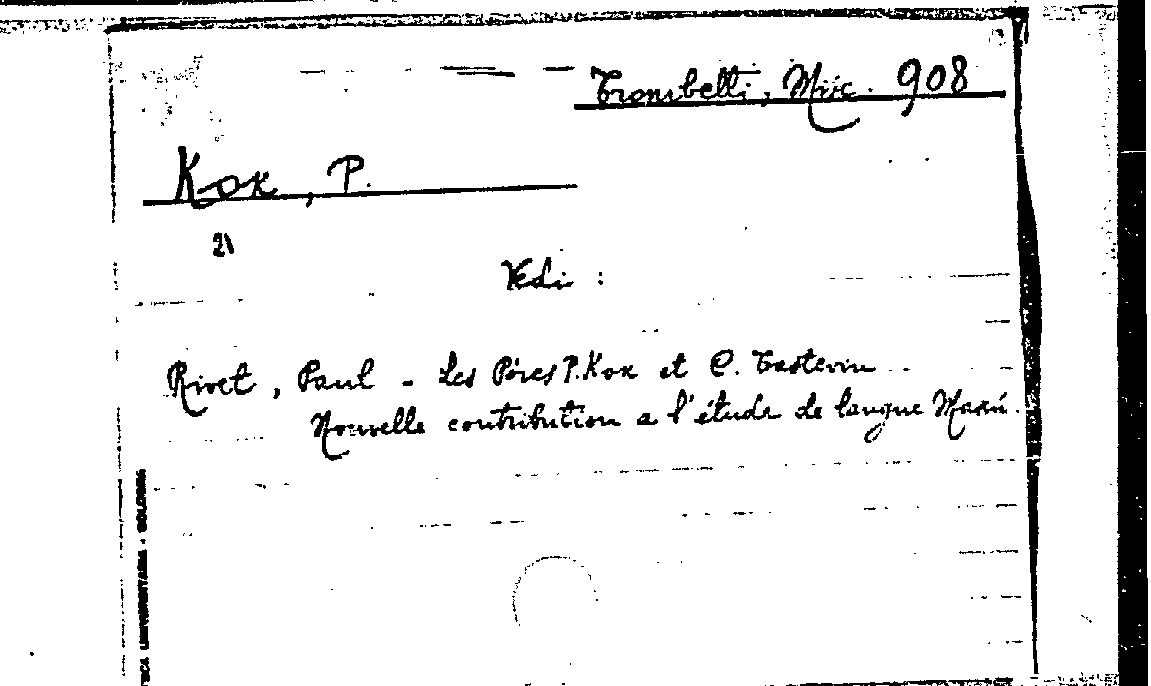 Trombetti, Misc. 908
Kok, P.
21
Vedi :
Rivet, Paul - Les Péres P. Kok et C. Tastevin
Nouvelle contribution a l'étude de langue Makú.
TECA UNIVERSITARIA - BOLOGNA